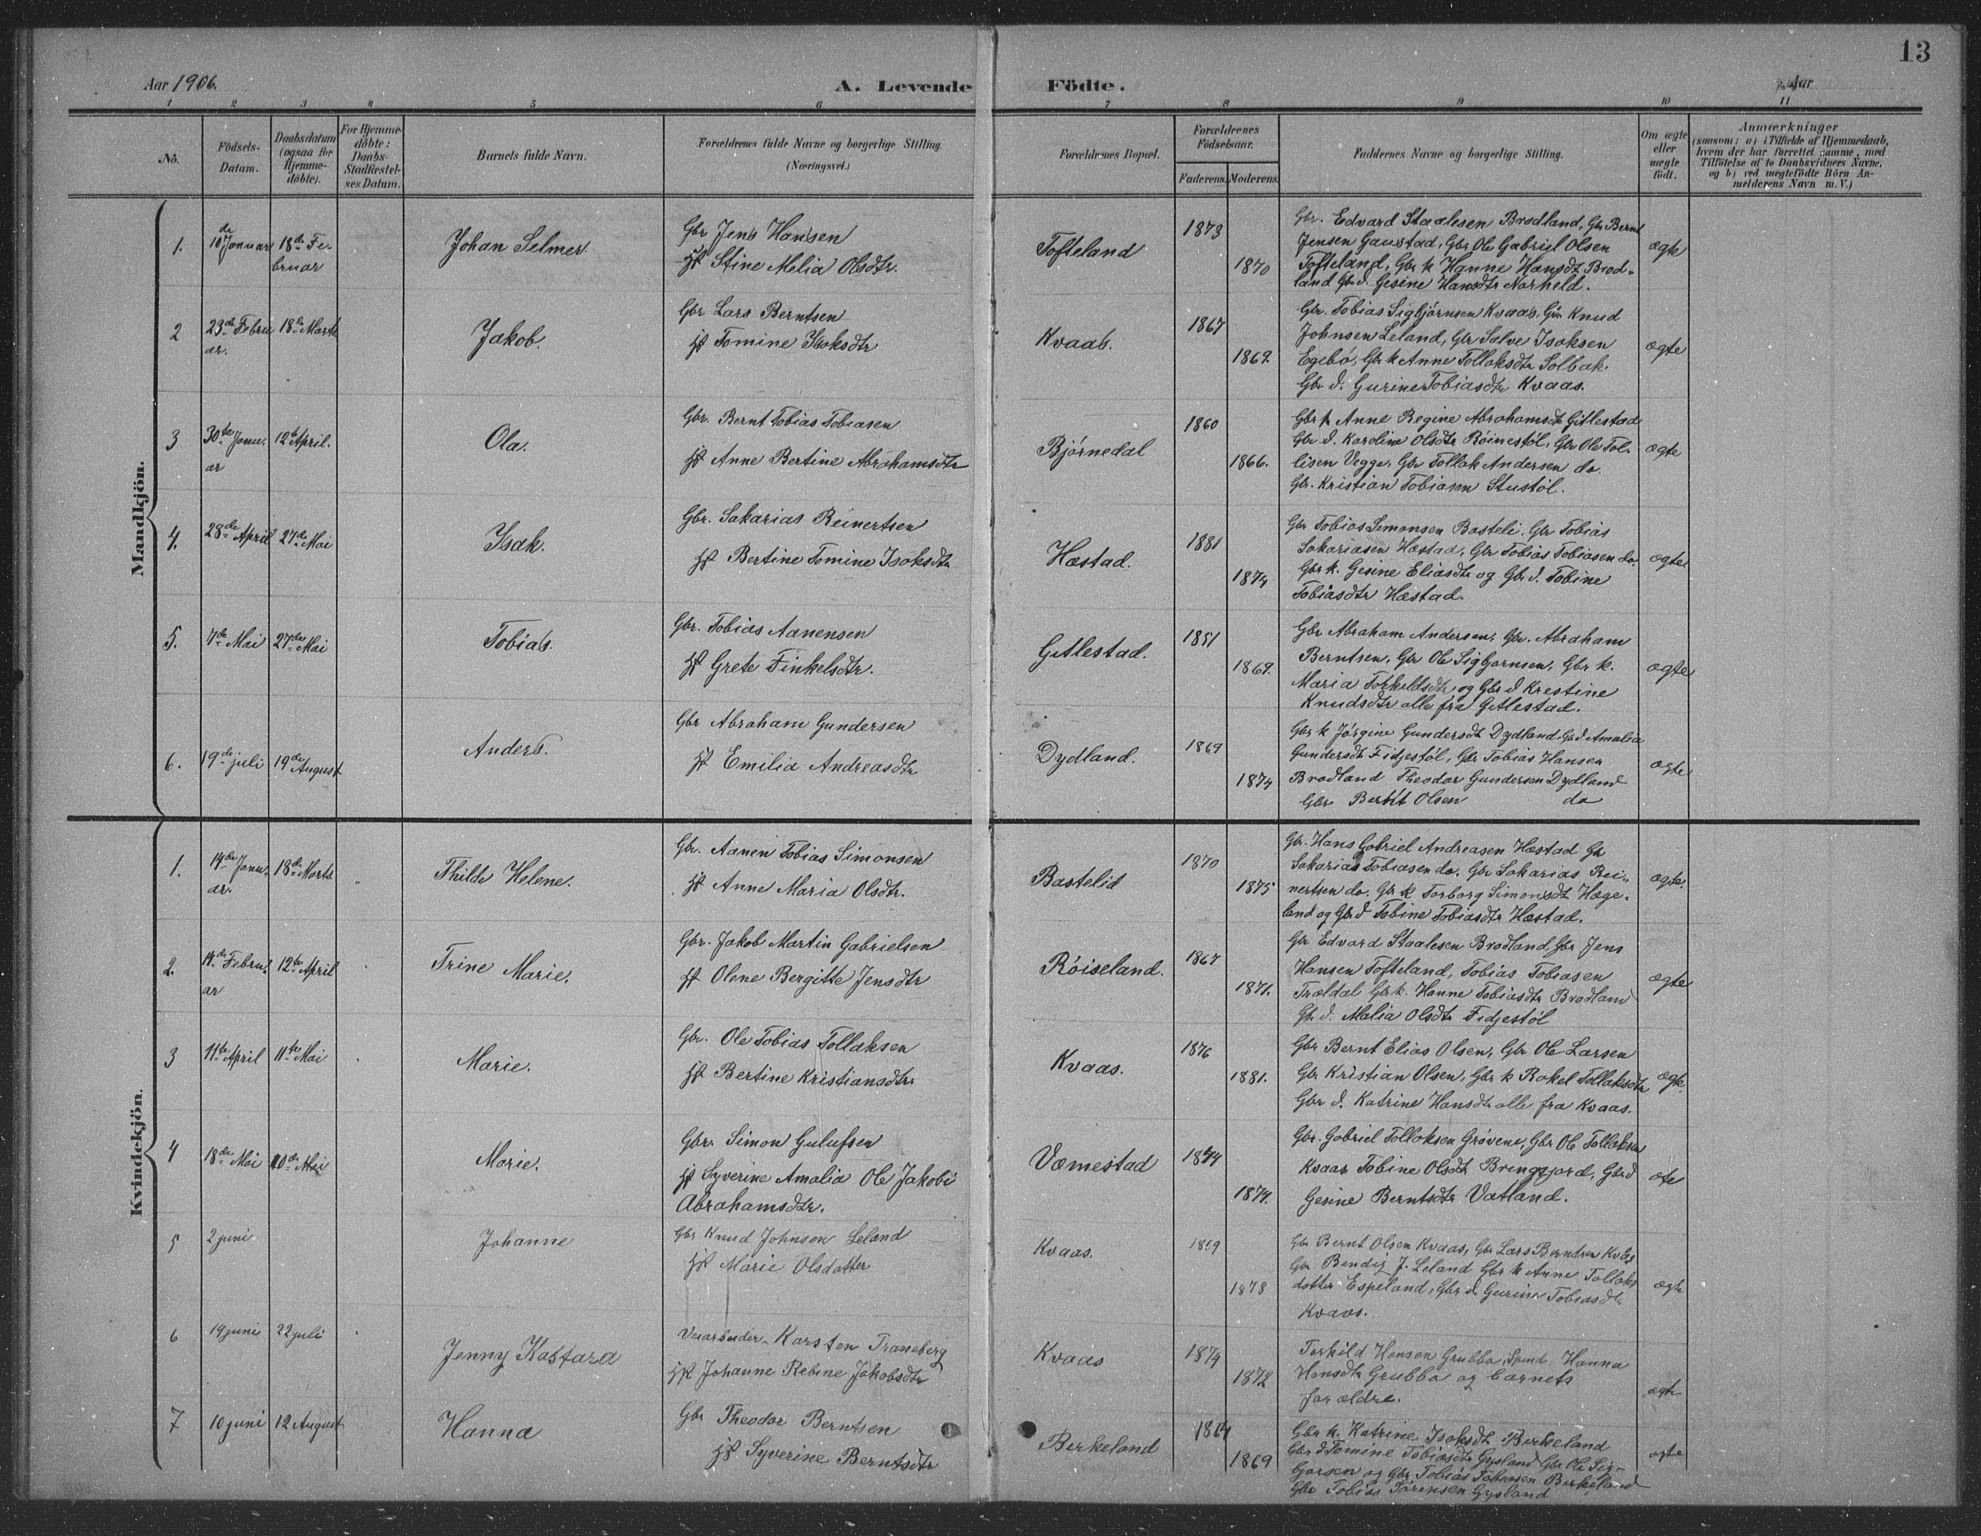 13
Aar 1906. A. Levende Födte. Aar
1 2 3 4 5 6 7 8 9 10 11
Nö. Födsels-Datum. Daabsdatum (ogsaa for Hjemmedöbte). For Hjemmedöbte: Daabs-Stadfæstelses Datum. Barnets fulde Navn. Forældrenes fulde Navne og borgerlige Stilling. (Næringsvei.) Forældrenes Bopæl. Forældrenes Födselsaar. Faderens. Moderens. Faddernes Navne og borgerlige Stilling. Om ægte eller uægte födt. Anmærkninger
(saasom: a) i Tilfælde af Hjemmedaab,
hvem der har forrettet samme, med
Tilföielse af to Daabsvidners Navne,
og b) ved uegtefödte Börn An-
melderens Navn m. V.)
Mandkjön.
1. 10de Januar 18de Februar Johan Selmer. Gbr Jens Hansen
Stine Malia Olsdtr. Tofteland 1873 1870
Gbr. Edvard Staalesen Brodland, Gbr Bernt
Jensen Gaustad, Gbr Ole Gabriel Olsen
Tofteland, Gbr k Hanne Hansdt Brod-
land Gbr d. Gesine Hansdtr ægte
2 23de Februar. 18de Marts Jakob. Gbr Lars Berntsen
Tomine Isaksdtr Kvaas. 1867 1869.
Gbr. Tobias Sigbjørnsen Kvaas, Gbr Knud
Johnsen Leland, Gbr Salve Isaksen
Egebö, Gbr k Anne Tollaksdtr Solbak.
Gbr d. Gurine Tobiasdtr Kvaas. ægte
3 30te Januar 12te April. Ola. Gbr. Bernt Tobias Tobiasen
Anne Bertine Abrahamsdtr Bjørnedal 1860 1866.
Gbr k Anne Regine Abrahamsdt Gitlestad
Gbr d. Karoline Olsdtr Röinestöl, Gbr Ole Tol-
lisen Vegge, Gbr Tollak Andersen do.
Gbr. Kristian Tobiasen Stustöl. ægte
4. 28de April 27de Mai Isak. Gbr. Sakarias Reinertsen
Bertine Tomine Isaksdtr Hæstad. 1881 1874
Gbr Tobias Simonsen Basteli. Gbr Tobias
Sakariasen Hæstad, Gbr Tobias Tobiasen do.
Gbr k. Gesine Eliasdtr og Gbr d. Tobine
Tobiasdtr Hæstad. ægte
5. 7de Mai 27de Mai Tobias. Gbr. Tobias Aanensen
Grete Finkelsdtr. Gitlestad. 1851 1869.
Gbr Abraham Andersen, Gbr. Abraham
Berntsen, Gbr Ole Sigbjørnsen, Gbr k.
Maria Torkeldsdtr og Gbr d Krestine
Knudsdtr alle fra Gitlestad. ægte
6. 19de juli 19de August Anders. Gbr Abraham Gundersen
Emilia Andreasdtr Dydland. 1869 1874
Gbr k Jørgine Gundersdt Dydland, Gbr d Amalia
Gundersdt Fidjestöl, Gbr Tobias Hansen
Brodland Theodor Gundersen Dydland
Gbr Bernt Olsen do ægte
Kvindekjön.
1. 14de Januar. 18de Marts Thilde Helene. Gbr. Aanen Tobias Simonsen
Anne Maria Olsdtr. Bastelid 1870 1875
Gbr. Hans Gabriel Andreasen Hæstad Gbr
Sakarias Tobiasen do. Gbr Sakarias Rei-
nertsen do. Gbr k Torborg Simonsdt Hæge-
land og Gbr d Tobine Tobiasdtr Hæstad. ægte.
2. 14de Februar 12te April Trine Marie. Gbr. Jakob Martin Gabrielsen
Olene Bergitte Jensdtr Röiseland. 1867 1871.
Gbr Edvard Staalesen Brodland, Gbr Jens
Hansen Tofteland, Tobias Tobiasen
Trældal Gbr k. Hanne Tobiasdtr Brodland
Gbr d. Malia Olsdtr Fidjestöl ægte
3 11te April 11te Mai Marie. Gbr. Ole Tobias Tollaksen
Bertine Kristiansdtr Kvaas. 1876 1881.
Gbr Bernt Elias Olsen, Gbr Ole Larsen
Gbr Kristian Olsen, Gbr k Rakel Tollaksdtr
Gbr d. Katrine Hansdtr alle fra Kvaas. ægte
4 18de Mai Mai Marie. Gbr. Simon Gulufsen
Syverine Amalia Ole Jakobi
Abrahamsdtr. Væmestad 1874.
Gbr. Gabriel Tollaksen Grövene, Gbr Ole Tollaksen
Kvaas Tobine Olsdt Bringsjord, Gbr d
Gesine Berntsdtr Vatland.
5 2 juni Johanne Gbr Knud Johnsen Leland
Marie Olsdatter Kvaas. 1878
Gbr Bernt Olsen Kvaas, Gbr Lars Berntsen Kvaas
Gbr Bendig J. Leland Gbr k Anne Tollaks
datter Espeland, Gbr d Gurine Tobiasdtr
Kvaas. ægte
6 19 juni 22 juli Jenny Kastara Karsten Traneberg
Johanne Rebine Jakobsdtr Kvaas 1874 1872
Torkild Hansen Grubba, Hanna
Hansdt Grubba og barnets
forældre. ægte
7 10 juni 12 August Hanna Gbr Theodor Berntsen
Syverine Berntsdtr Berkeland 1869
Gbr k. Katrine Isaksdt Birkeland
Gbr d Tomine Tobiasdtr Gysland Gbr Ole
og Gbr Tobias Tobiasen Birkeland
Gbr Tobias Sørensen Gysland ægte